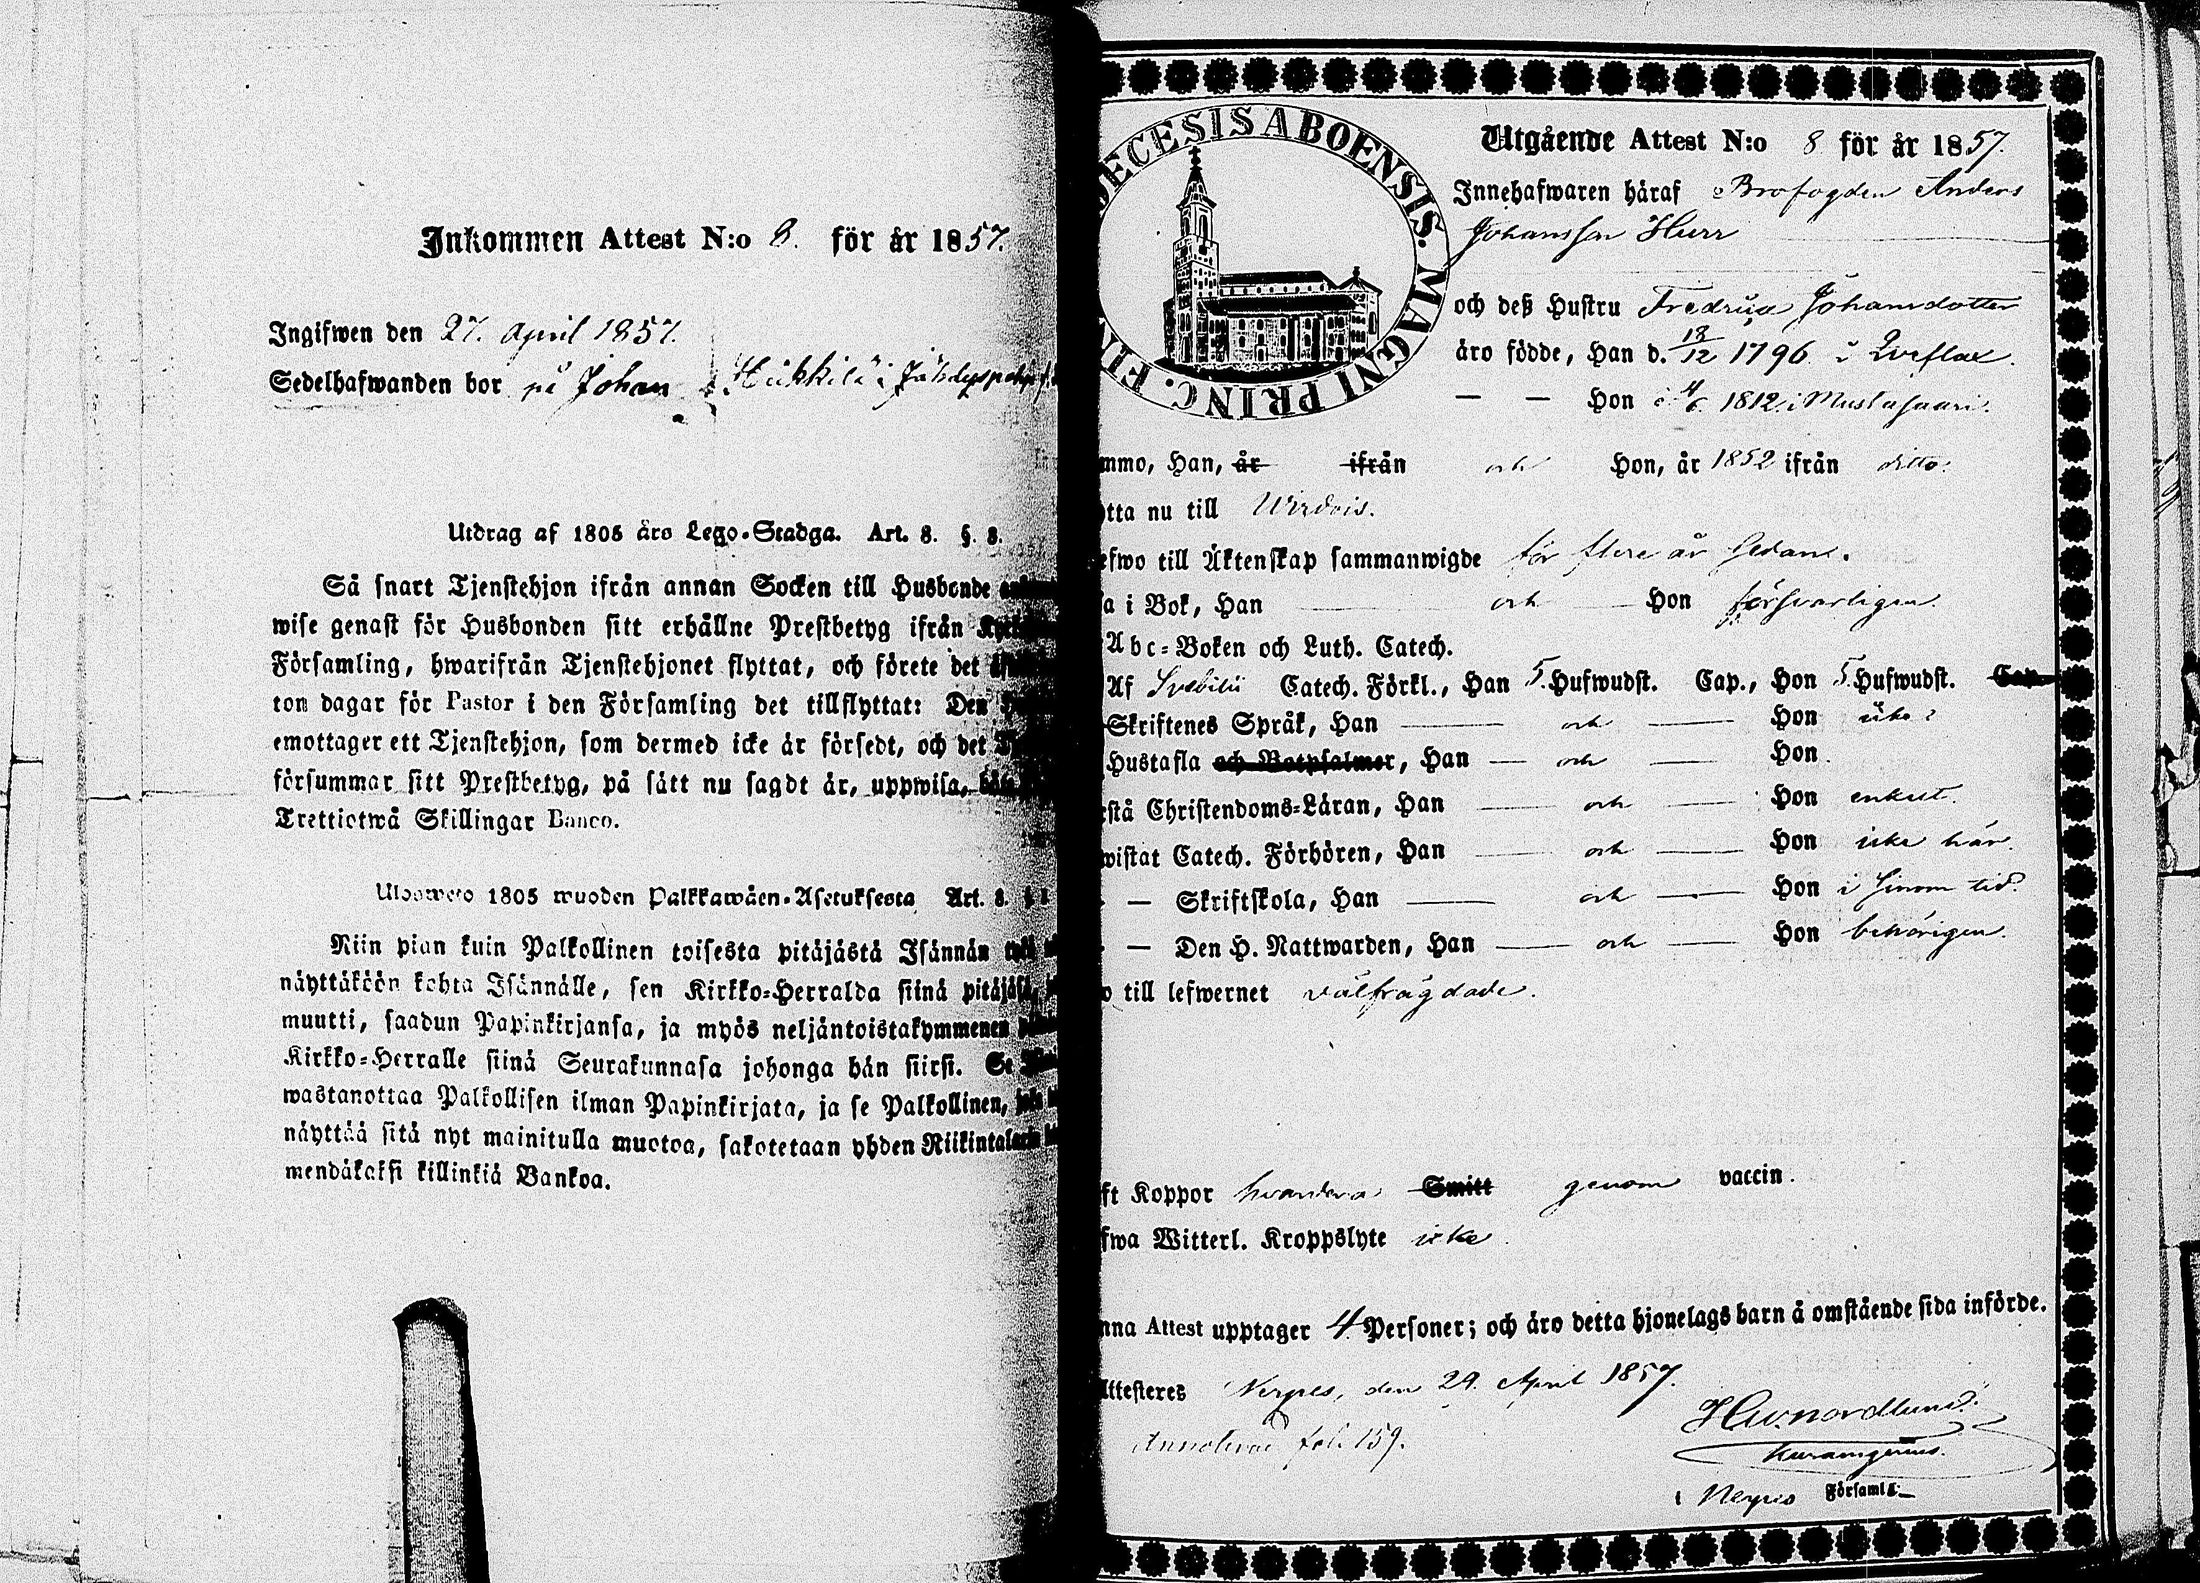 Inkommen Attest N:o 8. för år 1857.
Ingifwen den 27. April 1857.
Sedelhafwanden bor på Johan Heikkilä i
Utdrag af 1805 års Lego-Stadga. Art. 8. §. 8.
Så snart Tjenstehjon ifrån annan Socken till Husbonde
wise genast för Husbonden sitt erhållne Prestbetyg ifrån
Församling, hwarifrån Tjenstehjonet flyttat, och förete det
ton dagar för Pastor i den Församling det tillflyttat: Den
emottager ett Tjenstehjon, som dermed icke är försedt, och det
försummar sitt Prestbetyg, på sätt nu sagdt är, uppwisa,
Trettiotwå Skillingar Banco.
Ulosweto 1805 wuoden Palkkawäen-Asetuksesta Art. 8.
Niin pian kuin Palkollinen toisesta pitäjästä Isännän
näyttäköön kohta Isännälle, sen Kirkko-Herralda siinä
muutti, saadun Papinkirjansa, ja myös neljäntoistakymmenen
Kirkko-Herralle siinä Seurakunnasa johonga hän siirsi. Se
wastanottaa Palkollisen ilman Papinkirjata, ja se Palkollinen,
näyttää sitä nyt mainitulla muotoa, sakotetaan yhden Riikintalarin
mendäkaksi killinkiä Bankoa.
DECESIS ABOENSIS. MAGNI PRINC. FI
Utgående Attest N:o 8 för år 1857.
Innehafwaren häraf Brofogden Anders
Johansson Hurr
och deß Hustru Fredrika Johansdotter
äro födde, Han d. 13/12 1796 i Qveflax.
— — Hon d. 4/6 1812 i Mustasaari.
mmo, Han, år ifrån och Hon, år 1852 ifrån ditto.
tta nu till Wirdois.
efwo till Äktenskap sammanwigde för flere år sedan.
a i Bok, Han och Hon försvarligen.
Abc-Boken och Luth. Catech.
Af Svebilii Catech. Förkl., Han 5. Hufwudst. Cap., Hon 5. Hufwudst. Cap.
Skriftenes Språk, Han och Hon
Hustafla och Botpsalmer, Han och Hon
rstå Christendoms-Läran, Han och Hon enkelt.
wistat Catech. Förhören, Han och Hon icke här.
— Skriftskola, Han och Hon i sinom tid.
— Den H. Nattwarden, Han och Hon behörigen.
o till lefwernet välfrägdade.
ft Koppor hvardera Smitt genom vaccin.
fwa Witterl. Kroppslyte icke.
nna Attest upptager 4. Personer; och äro detta hjonelags barn å omstående sida införde.
Attesteres Nerpes, den 29. April 1857.
Annoterad fol. 159.
i Nerpes Församl.